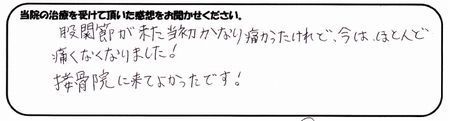 当院の治療を受けて頂いた感想をお聞かせください。
股関節が来た当初かなり痛かったけれど、今は、ほとんど
痛くなくなりました!
接骨院に来てよかったです!